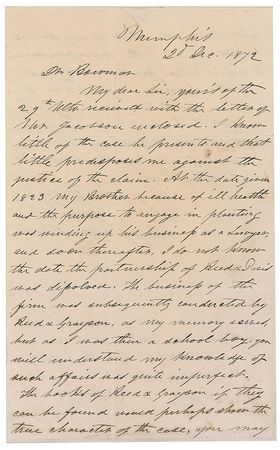 Memphis
2d Dec. 1872
Dr Bowmar
My dear Sir, yours of the
29th Ulto. received with the letter of
Mr. Jacobson inclosed. I know
little of the case he presents and that
little predisposes me against the
justice of the claim. At the date given
1823 my Brother because of ill health
and the purpose to engage in planting
was winding up his business as a lawyer,
and soon thereafter, I do not know
the date the partnership of Reed & Davis
was dissolved. The business of the
firm was subsequently conducted by
Reed & Grayson, as my memory serves,
but as I was then a school boy, you
will understand my knowledge of
such affairs was quite imperfect.
The books of Reed & Grayson if they
can be found would perhaps show the
true character of the case, you may